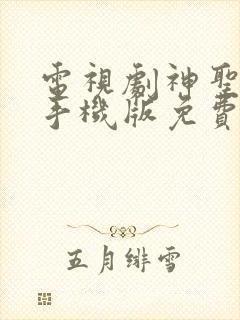 電視劇神聖
手機版免費
五月緋雪